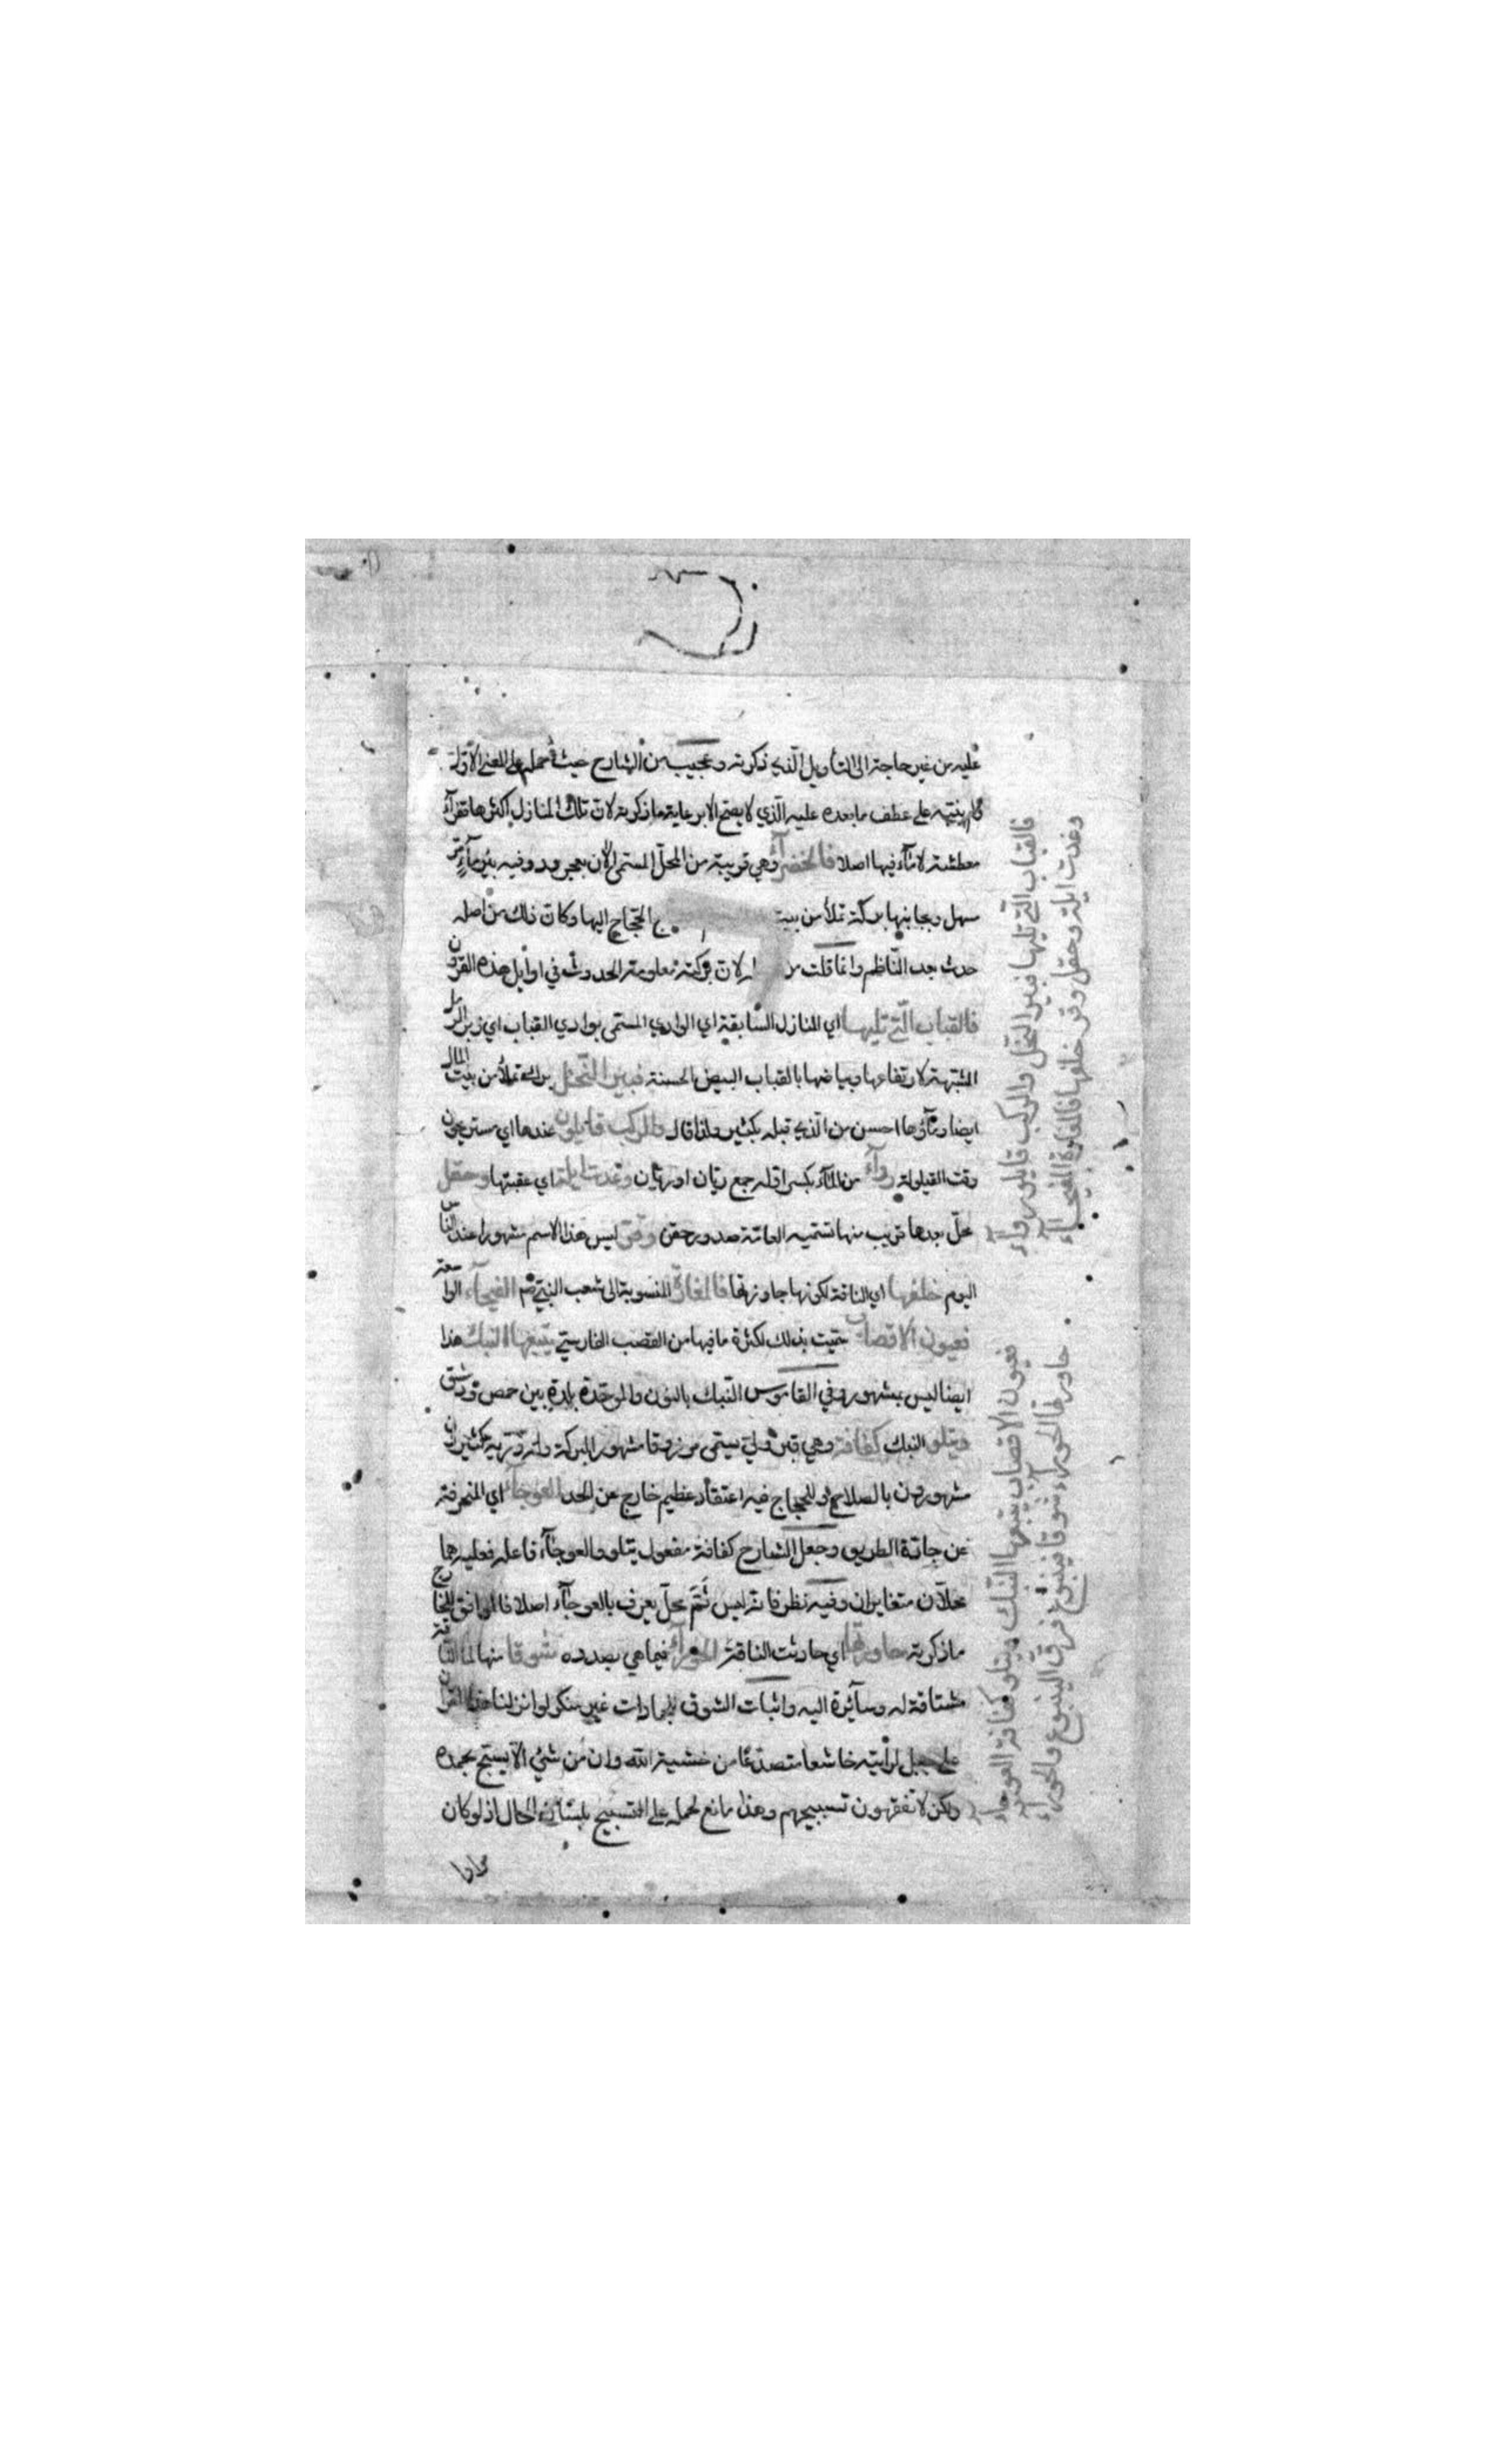 عليه من غير حاجة الى التأويل الذي ذكرته وعجيب من الشارح حيث حمله على المعنى الاول
ولم ينبه على عطف ما بعده عليه الذي لا يصح الا برعاية ما ذكرته لان تلك المنازل اكثرها قفرآء
معطشة لا مآء فيها اصلا فالخضرآء وهي قريبة من المحل المسمى الآن بعجرود وفيه بئر مآء مر
سهل وبجانبها بركة تملأ من بيت الحجاج اليها وكان ذلك من اصله
حدث بعد الناظم وانما قلت لان بركته معلومة الحدوث في اوايل هذه القرن
فالقباب التي تليها اي المنازل السابقة اي الوادي المسمى بوادي القباب اي الرمل
المشبهة لارتفاعها وبياضها بالقباب البيض الحسنة فبير النخل بركة تملأ من بيت المال
ايضا ومآؤها احسن من الذي قبله بكثير ولذا قال والركب قايلون عندها اي مستريحون
وقت القيلولة روآء من المآء بكسر اوله جمع ريان او ريئان وغدت ايلة اي عقبتها وحقل
محل بعدها قريب منها تسميه العامة صدور حقن وقر ليس هذا الاسم مشهورا عند الناس
اليوم خلفها اي الناقة لكونها جاوزتها فالمغارة المنسوبة الى شعيب النبي الفيحآء الواسعة
فعيون الاقصاب سميت بذلك لكثرة ما فيها من القصب الفارسي يتبعها النبك هذا
ايضا ليس بمشهور وفي القاموس النبك بالنون والموحدة بلدة بين حمص ودمشق
ويتلو النبك كفافة وهي قبر ولي يسمى مرزوقا مشهور البركة وله ذرية كثيرون
مشهورون بالصلاح وللحجاج فيه اعتقاد عظيم خارج عن الحد العوجآء اي المنحرفة
عن جادة الطريق وجعل الشارح كفافة مفعول يتلو والعوجآء فاعله فعليه هما
محلان متغايران وفيه نظر فانه ليس ثم محل يعرف بالعوجآء اصلا فالموافق للخارج
ما ذكرته حاورتها اي حادثت الناقة الحورآء فيما هي بصدده شوقا منها لما الناقة
مشتاقة له وسآئرة اليه واثبات الشوق للجمادات غير منكر لو انزلنا هذا القرآن
على جبل لرأيته خاشعا متصدعا من خشية الله وان من شئ الا يسبح بحمده
ولكن لا تفقهون تسبيحهم وهذا مانع لحمله على التسبيح بلسان الحال اذ لو كان
فالقباب التي تليها فبير النخل والركب قايلون روآء
وغدت ايلة وحقل وقر خلفها فالمغارة الفيحآء
فعيون الاقصاب يتبعها النبك ويتلو كفافة العوجآء
حاورتها الحورآء شوقا فينبوع فرق الينبوع والحورآء